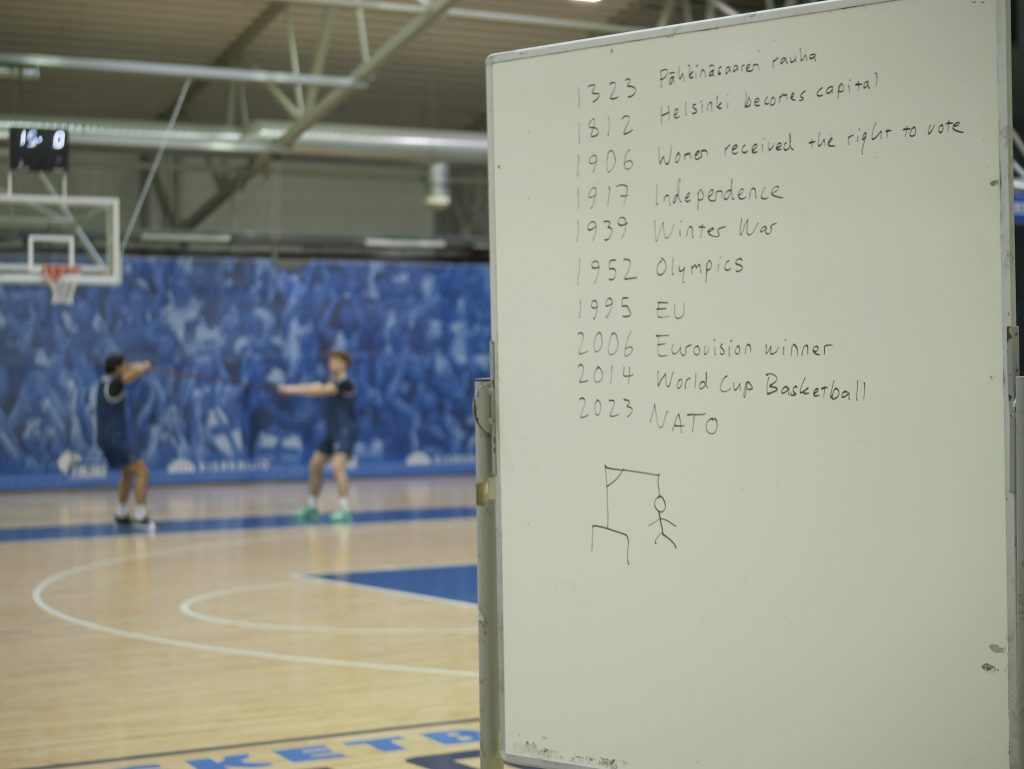 15:0 0
1323 Pähkinäsaaren rauha
1812 Helsinki becomes capital
1906 Women received the right to vote
1917 Independence
1939 Winter War
1952 Olympics
1995 EU
2006 Eurovision winner
2014 World Cup Basketball
2023 NATO
KETB